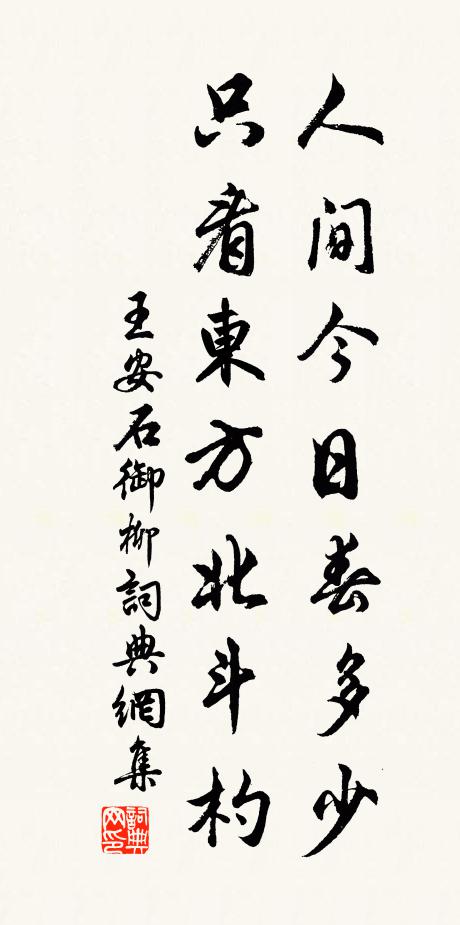 人间今日春多少
只看東方北斗杓
王安石御柳詞典網集
詞典网印